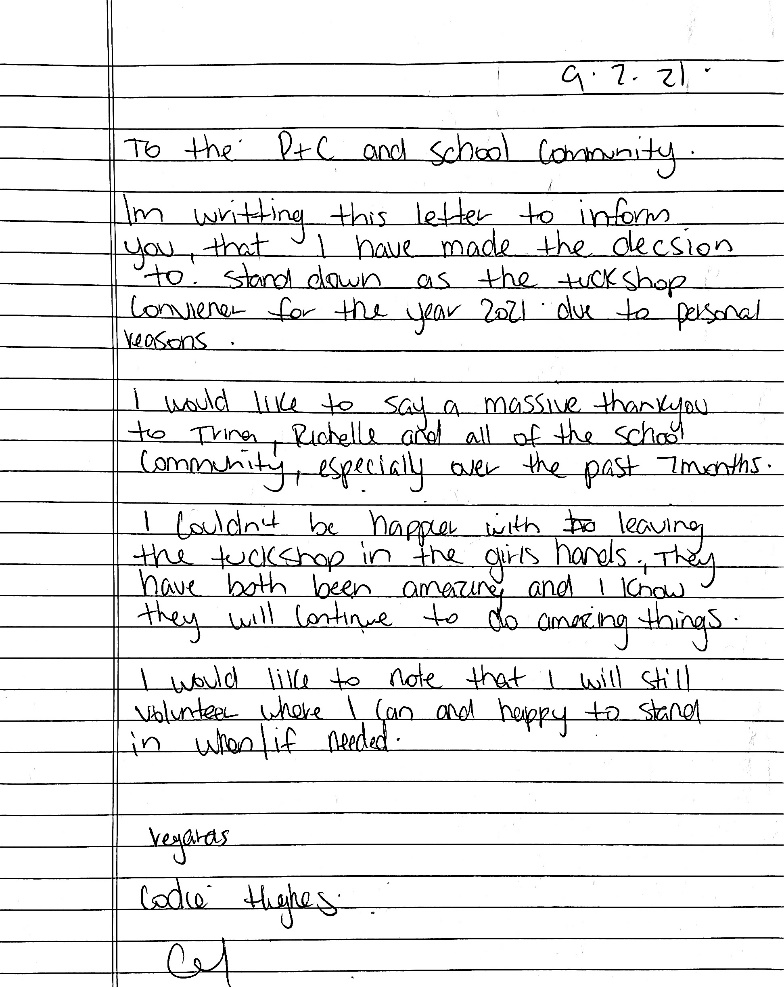 9.2.21.
To the P+C and school Community.
Im writting this letter to inform
you, that I have made the decsion
to. stand down as the tuckshop
Conviener for the year 2021 due to personal
reasons.
I would like to say a massive thankyou
to Trina, Richelle and all of the school
Community, especially over the past 7months.
I Couldn't be happier with to leaving
the tuckshop in the girls hands., They
have both been amazing and I know
they will continue to do amazing things.
I would like to note that I will still
volunteer where I can and happy to stand
in when/if needed.
regards
Codie Hughes.